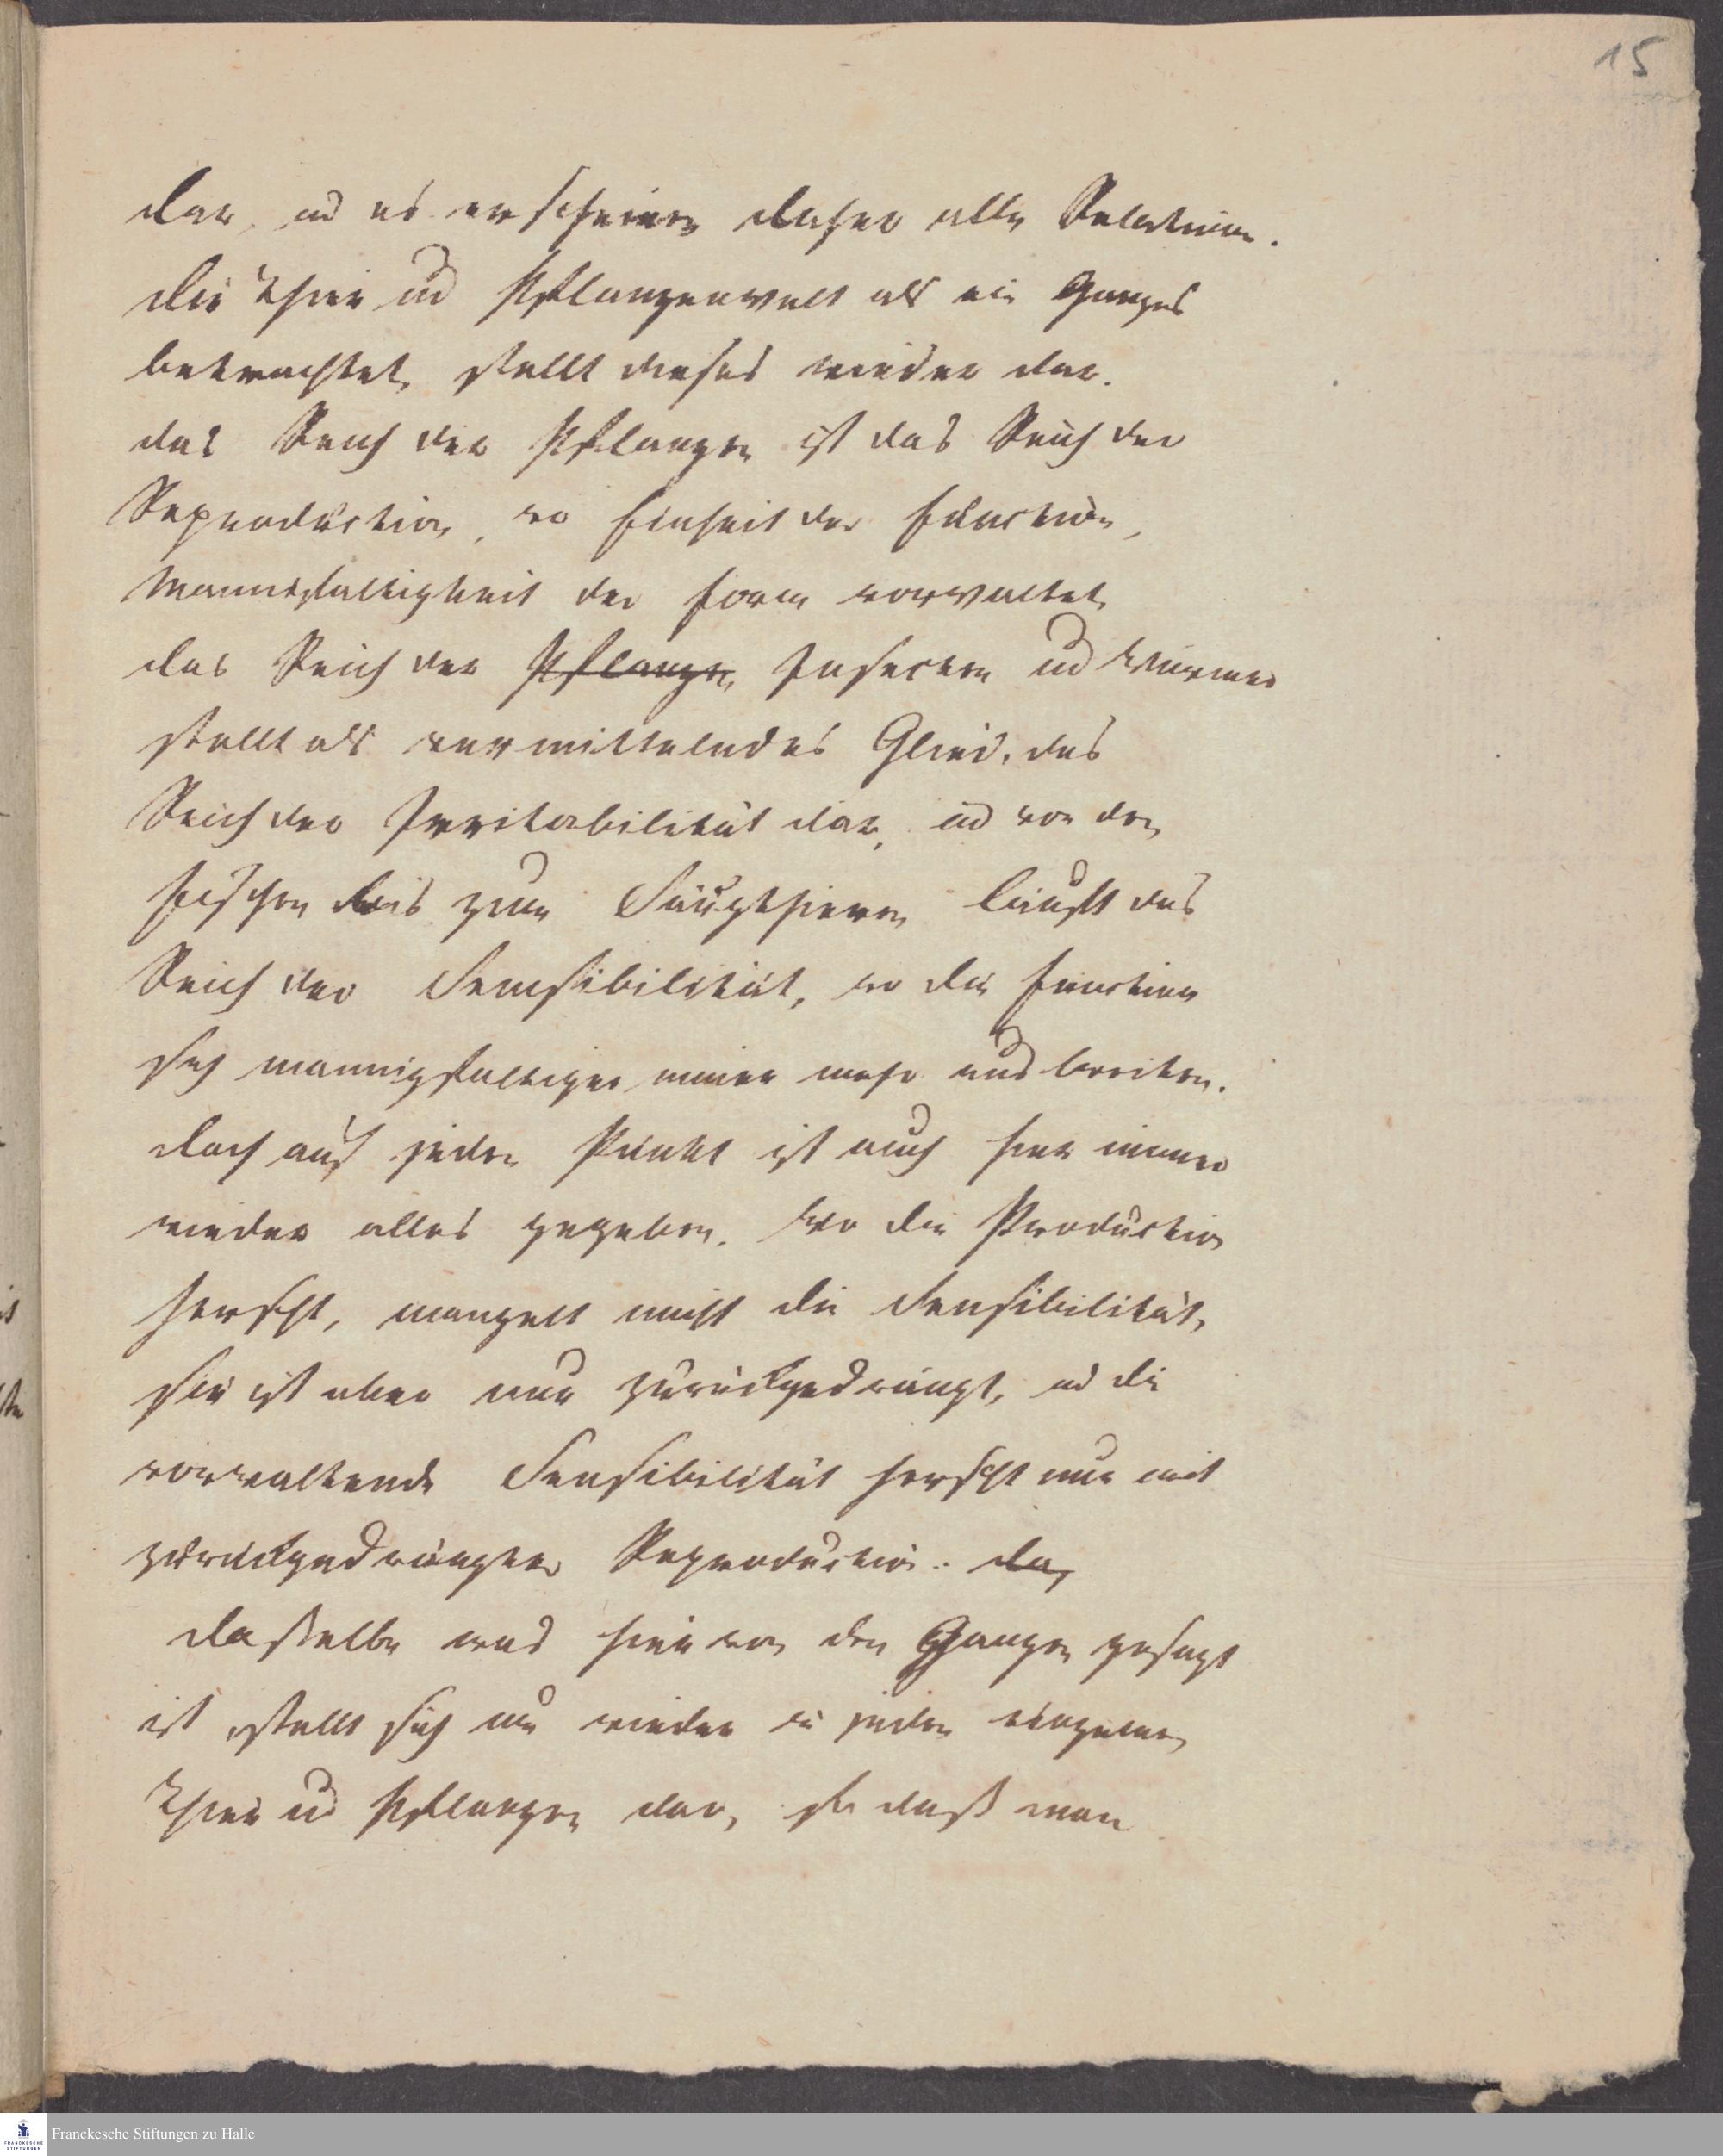 15
dar, ud es erscheinen daher alle Relationen.
die Thier ud Pflanzenwelt als ein Ganzes
betrachtet, stellt dieses wieder dar.
das Reich der Pflanzen ist das Reich der
Reproduction, wo Einheit der Function,
Mannigfaltigkeit der Form vorwaltet,
das Reich der Pflanzen Insecten ud Würmer
stellt als vermittelndes Glied, das
Reich der Irritabilität dar, ud von den
Fischen bis zum Säugthieren läuft das
Reich der Sensibilität, wo die Function
sich mannigfaltiger immer mehr ausbreiten.
doch auf jeden Punkt ist auch hier immer
wieder alles gegeben. Wo die Production
herscht, mangelt nicht die Sensibilität,
sie ist aber nur zurückgedrängt, ud die
vorwaltende Sensibilität herscht nur mit
zurückgedrängter Reproduction. da
dasselbe was hier von den Ganzen gesagt
ist, stellt sich nun wieder in jeden einzelnen
Thier ud Pflanzen dar, so daß man
Franckesche Stiftungen zu Halle
FRANCKESCHE
STIFTUNGEN